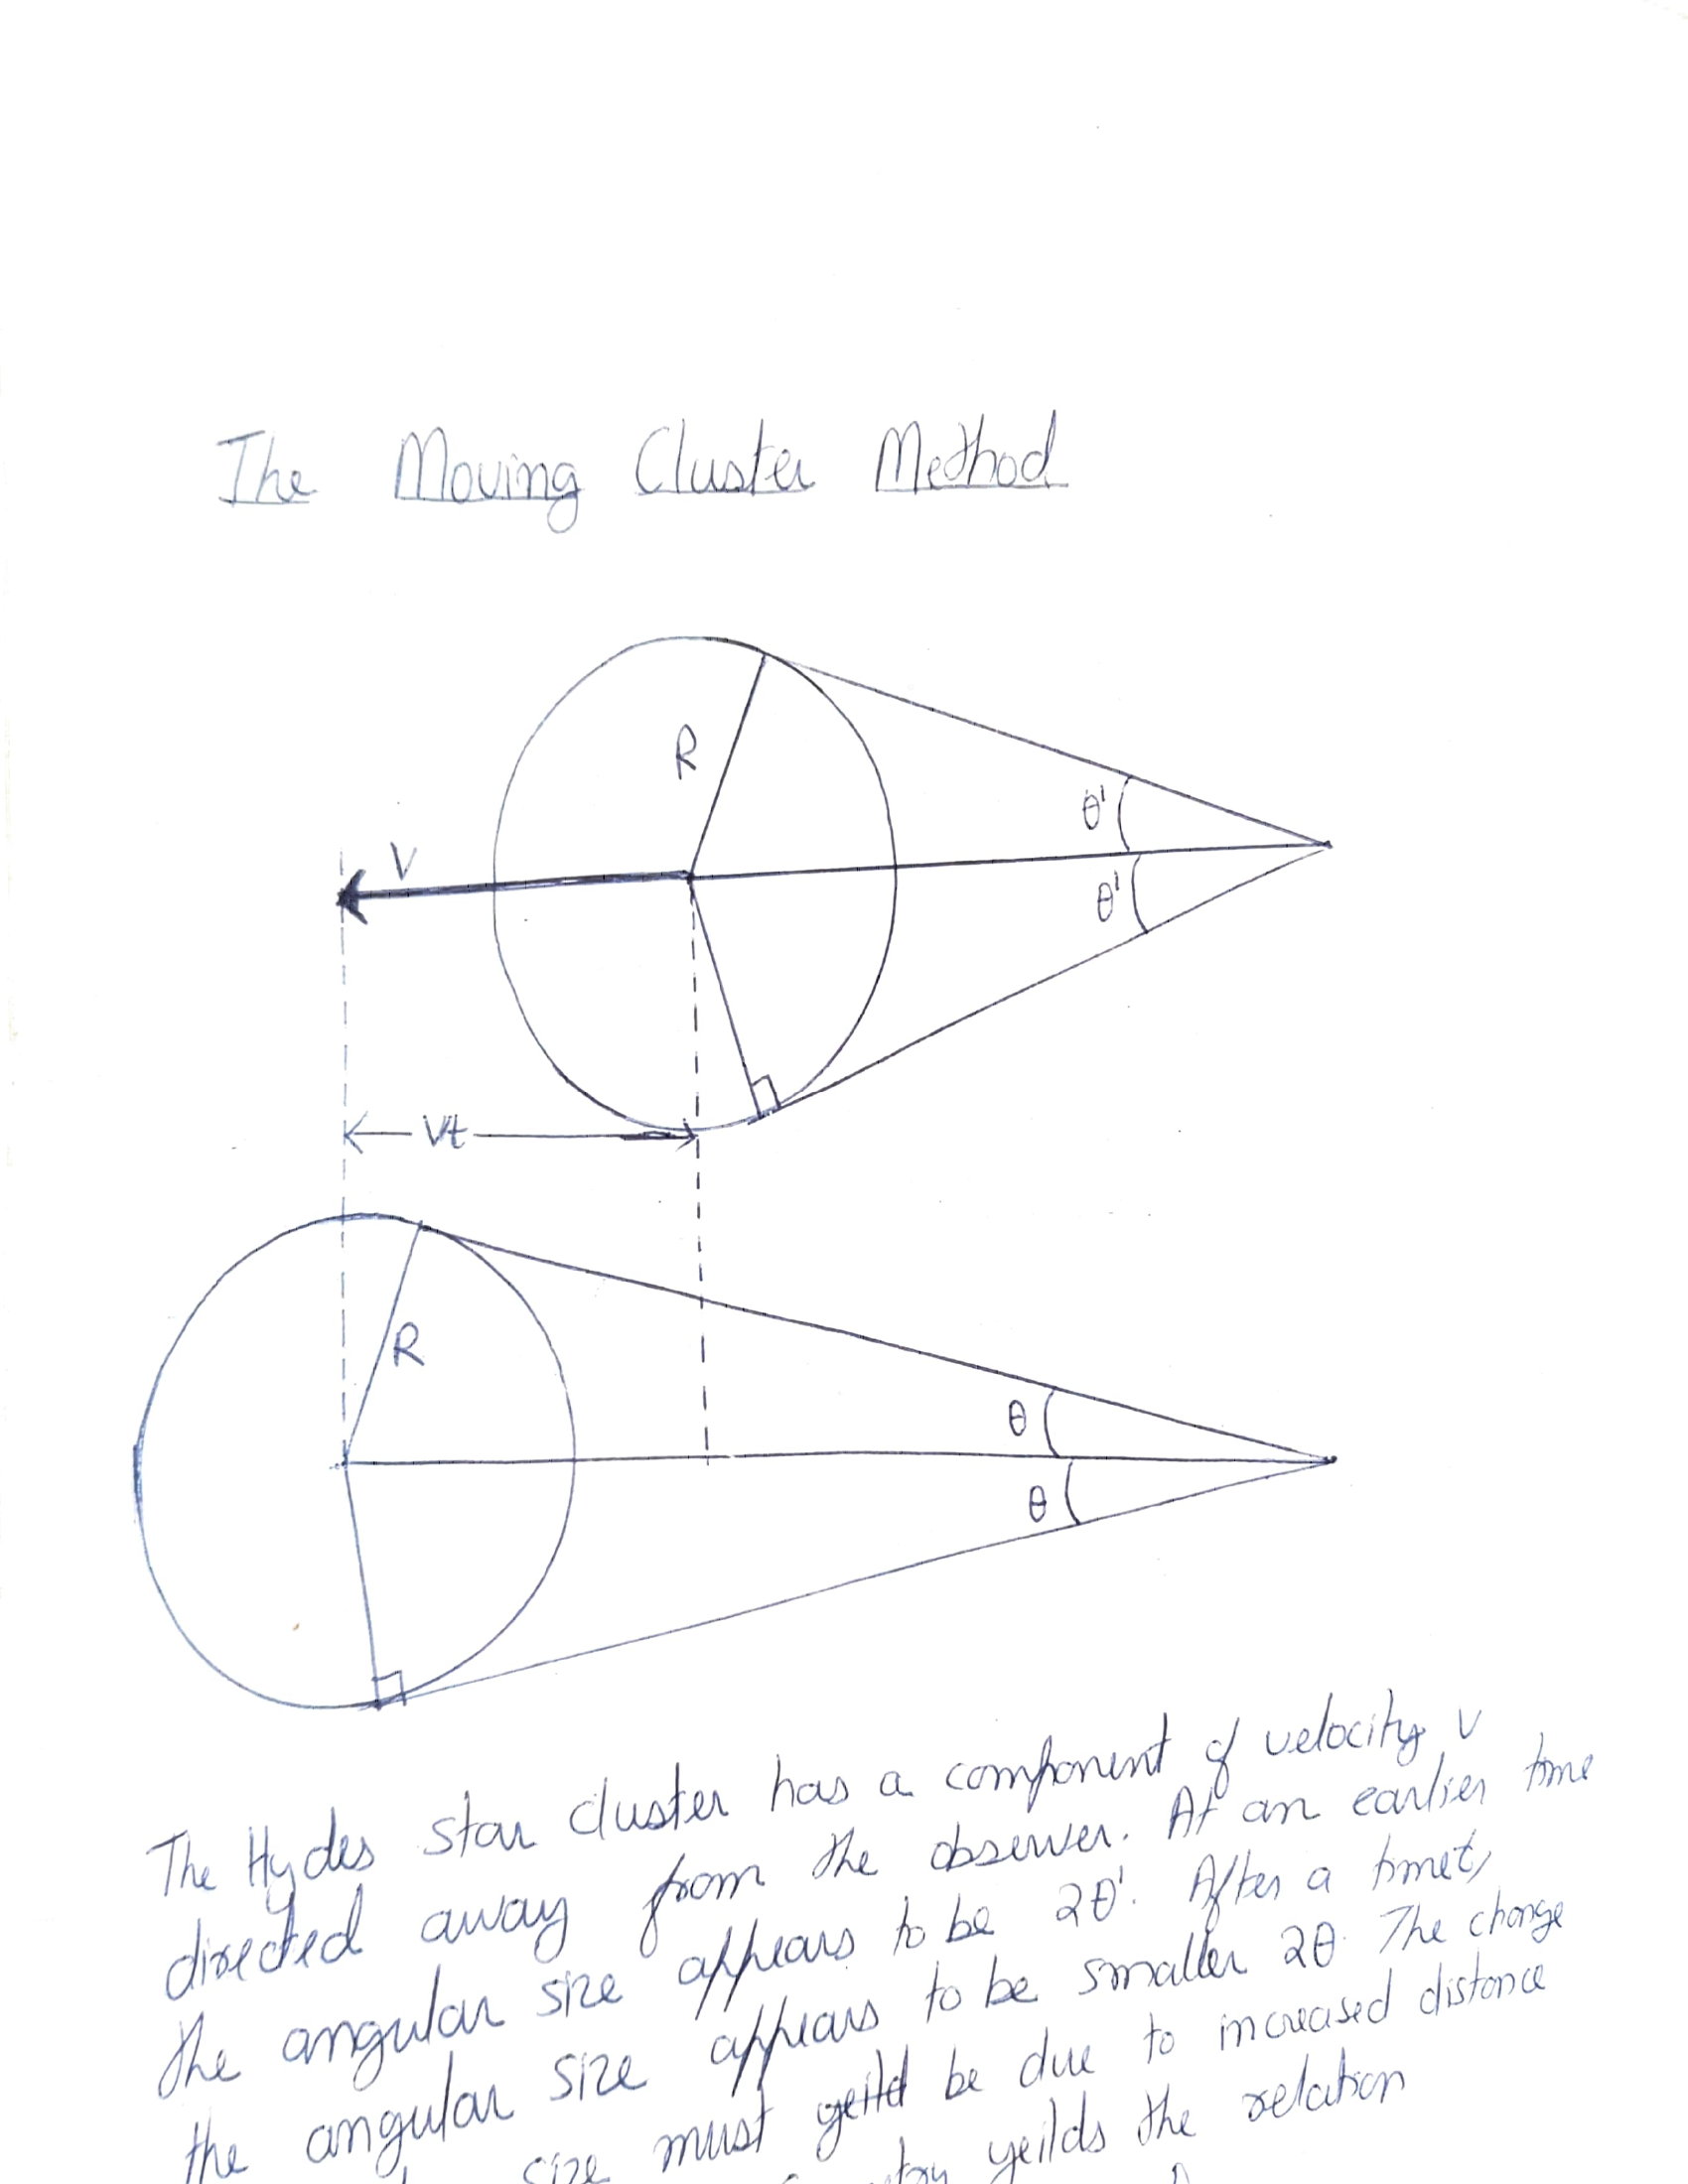 The Moving Cluster Method
R
θ'
V
θ'
Vt
R
θ
θ
The Hydes star cluster has a component of velocity v
directed away from the observer. At an earlier time
the angular size appears to be 2θ'. After a time t,
the angular size appears to be smaller 2θ. The change
size must be due to increased distance
yeilds the relation